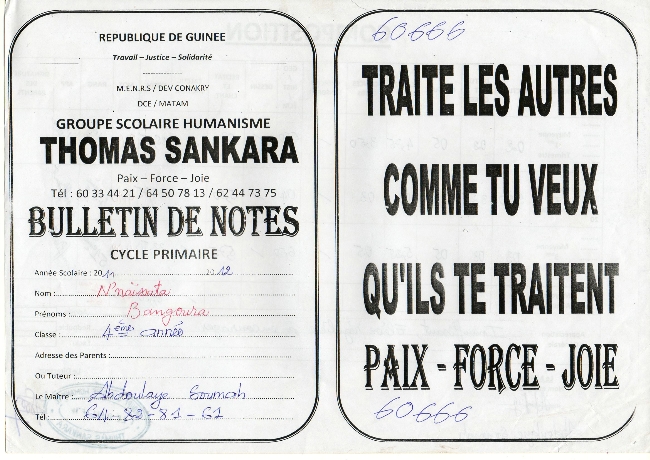 REPUBLIQUE DE GUINEE
Travail – Justice – Solidarité
M.E.N.R.S / DEV CONAKRY
DCE / MATAM
GROUPE SCOLAIRE HUMANISME
THOMAS SANKARA
Paix – Force – Joie
Tél : 60 33 44 21 / 64 50 78 13 / 62 44 73 75
BULLETIN DE NOTES
CYCLE PRIMAIRE
Année Scolaire : 2011 2012
Nom : N'naïssata
Prénoms : Bangoura
Classe : 4ème année
Adresse des Parents :
Ou Tuteur :
Le Maître : Abdoulaye Soumah
Tél : 64-82-81-61
60666
TRAITE LES AUTRES
COMME TU VEUX
QU'ILS TE TRAITENT
PAIX - FORCE - JOIE
60666